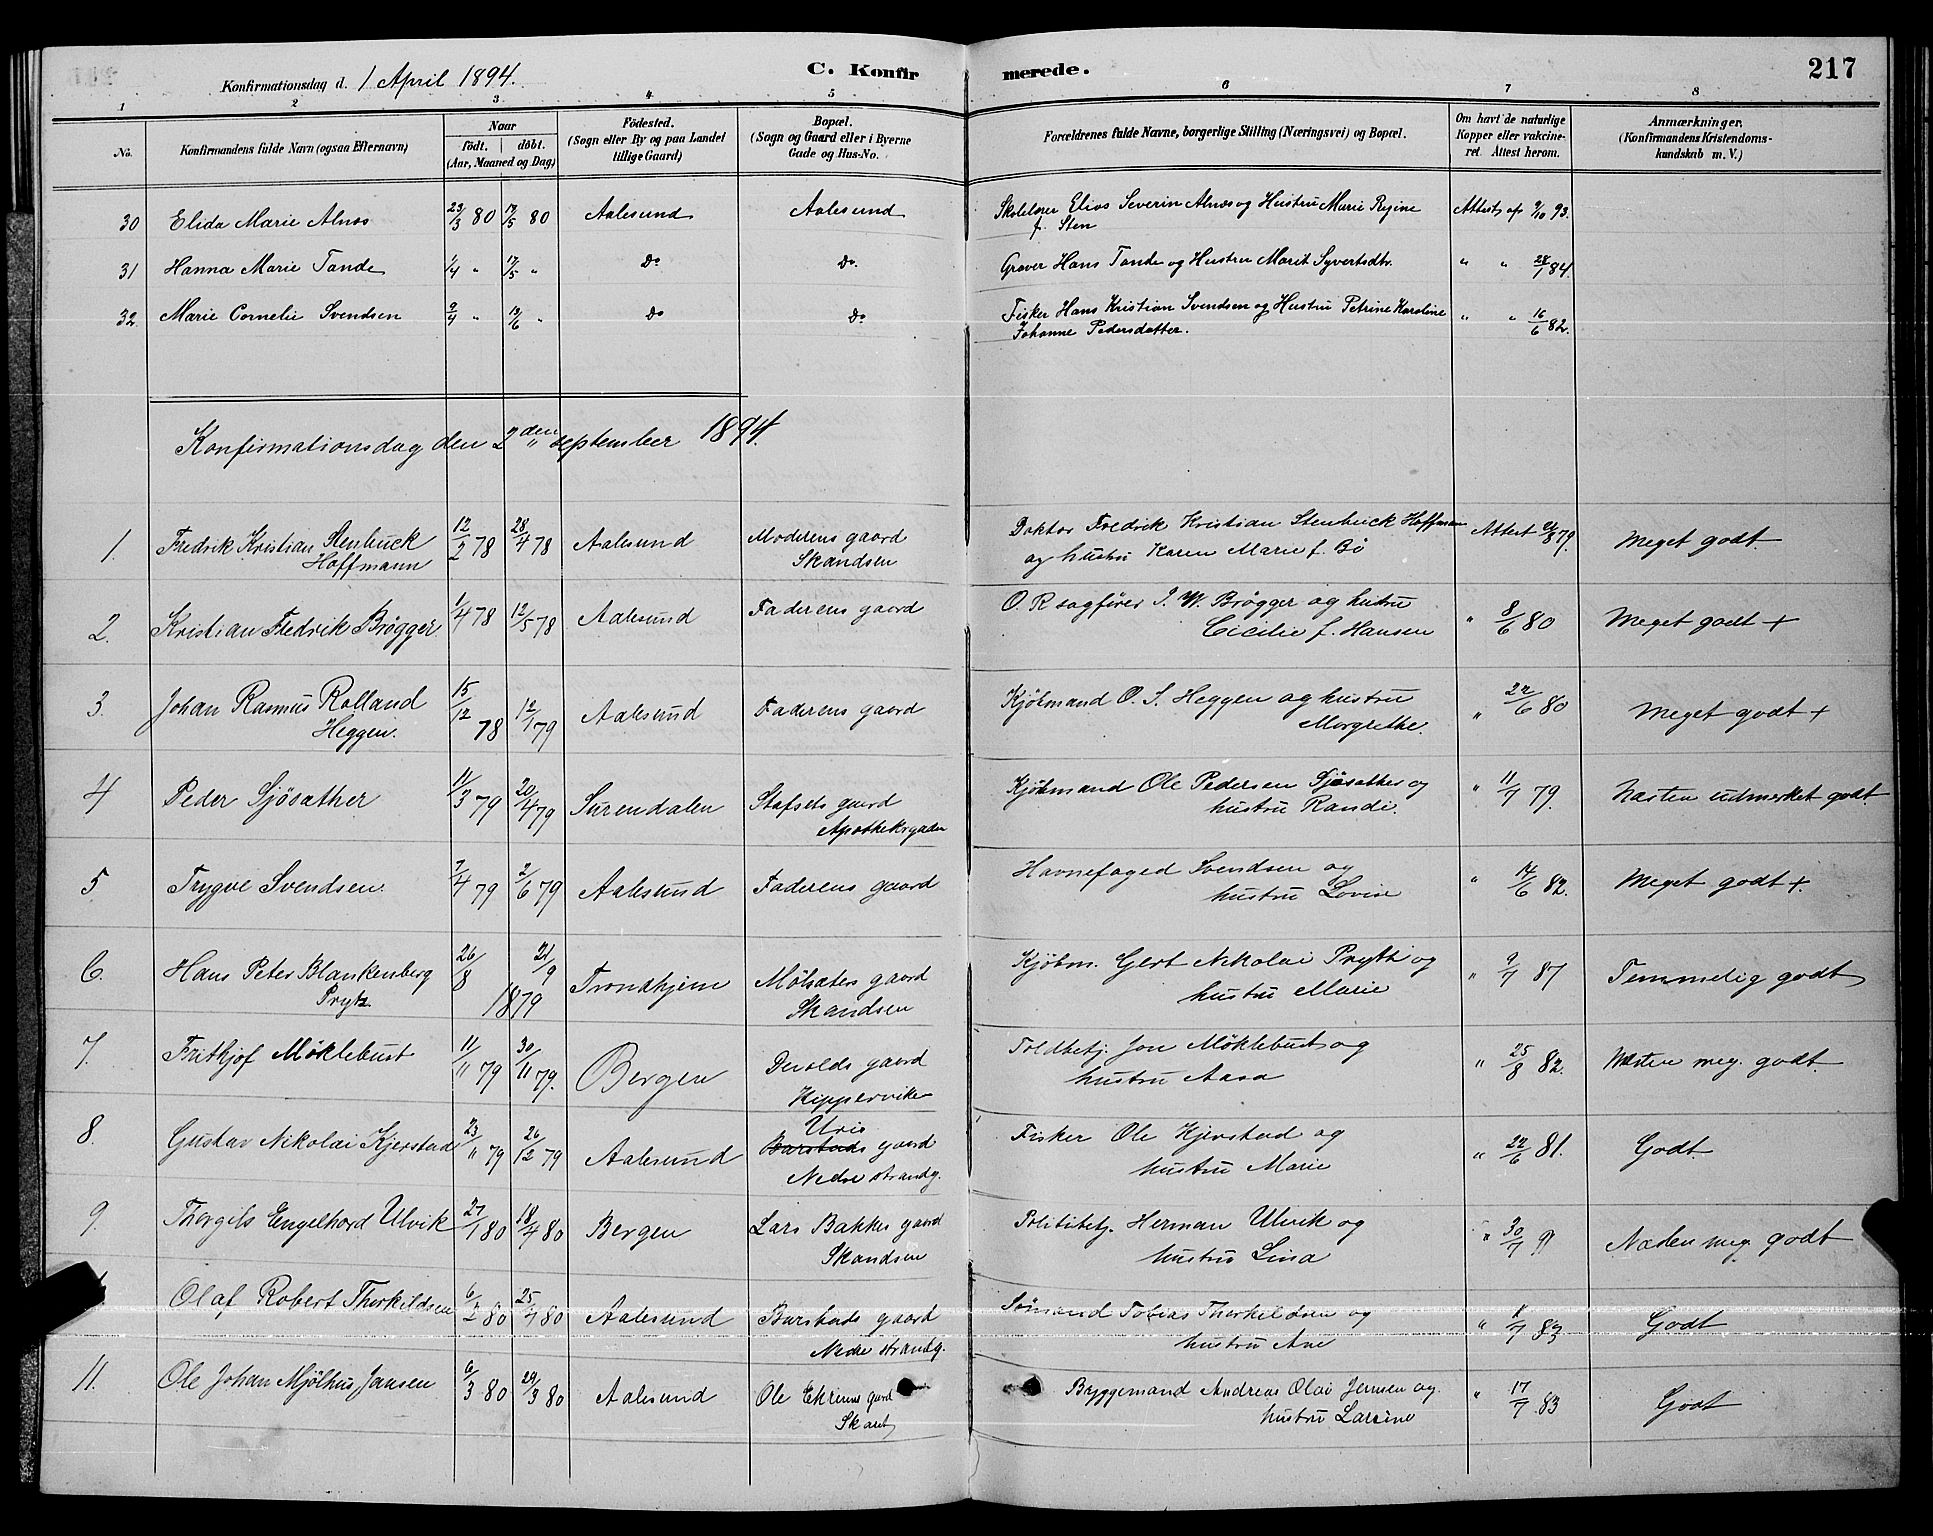 Konfirmationsdag d. 1 April 1894.
C. Konfirmerede.
217
1 2 3 4 5 6 7 8
No.
Konfirmandens fulde Navn (ogsaa Efternavn)
Naar
födt. döbt.
(Aar, Maaned og Dag)
Födested.
(Sogn eller By og paa Landet
tillige Gaard)
Bopæl.
(Sogn og Gaard eller i Byerne
Gade og Hus-No.
Forældrenes fulde Navne, borgerlige Stilling (Næringsvei) og Bopæl.
Om havt de naturlige
Kopper eller vakcine-
ret. Attest herom.
Anmærkninger.
(Konfirmandens Kristendoms-
kundskab m. V.)
30 Elida Marie Alnæs 23/3 80 17/5 80 Aalesund Aalesund Skolelærer Elias Severin Alnæs og Hustru Marie Regine Attest af 9/10 93.
f. Sten
31 Hanna Marie Tande 1/4 " 17/5 " Do Do. Graver Hans Tande og Hustru Marit Syvertsdtr. " " 28/1 84.
32. Marie Cornelie Svendsen 9/4 " 13/6 " Do Do Fisker Hans Kristian Svendsen og Hustru Petrine Karoline " " 16/6 82.
Johanne Pedersdatter.
Konfirmationsdag den 2den september 1894.
1. Fredrik Kristian Stenbuck 12/2 78 28/4 78 Aalesund Moderens gaard Doktor Fredrik Kristian Stenbuck Hoffmann Attest 79. Meget godt.
Hoffmann Skandsen og hustru Karen Marie f. Bö
2. Kristian Fredrik Brøgger 1/4 78 12/5 78 Aalesund Faderens gaard O. R sagfører I. W. Brøgger og hustru " 8/6 80 Meget godt +
Cicilie f. Hansen
3. Johan Rasmus Rolland 15/12 78 12/1 79 Aalesund Faderens gaard Kjöbmand O. I. Heggen og hustru " 22/6 80 Meget godt +
Heggen. Margrethe.
4 Peder Sjösæther 11/3 79 20/4 79 Surendalen Stafsets gaard Kjöbmand Ole Pedersen Sjösæther og " 11/7 79. Næsten udmerket godt.
Apothekrgaden hustru Randi.
5 Trygve Svendsen. 7/4 79 2/6 79 Aalesund Faderens gaard Havnefoged Svendsen og " 14/6 82. Meget godt +.
hustru Lovise
6. Hans Peter Blankenberg 26/8 21/9 Trondhjem Mölsæters gaard Kjöbm. Gert Nikolai Prytz og " 9/7 87 Temmelig godt
Prytz 1879 Skandsen hustru Marie
7. Frithjof Møklebust 11/11 79 30/11 79. Bergen Devolds gaard Toldbetj. Jon Møklebust og " 25/8 82. Næsten meg. godt.
Kippervike hustru Aasa
8. Gustav Nikolai Kjerstad 23/11 79 26/12 79 Aalesund Uris Fisker Ole Kjerstad og " 22/6 81. Godt.
Barstads gaard
Nedre strandg. hustru Marie
9. Thorgils Engelhard Ulvik 27/1 80 18/4 80 Bergen Lars Bakkes gaard Politibetj. Herman Ulvik og " 30/7 Næsten meg. godt
Skandsen hustru Lina
Olaf Robert Therkildsen 6/2 80 25/ 80 Aalesund Barstads gaard Sömand Tobias Therkildsen og " /7 83 Godt
Nedre strandg. hustru Ane
11. Ole Johan Mjölhus Jansen 6/3 80 29/3 80 Aalesund Ole Ekrems gaard Byggemand Andreas Olai Jensen og " 17/7 83 Godt
Skaret hustru Larsine